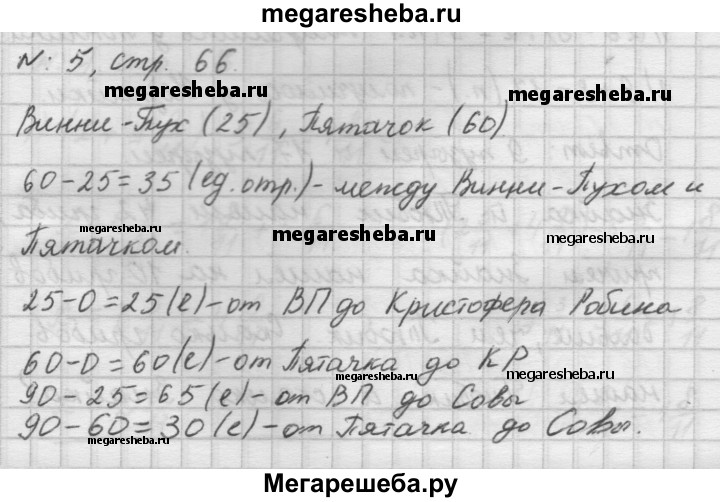 megaresheba.ru
N: 5, стр. 66.
megaresheba.ru
megaresheba.ru
Винни-Пух (25), Пятачок (60)
60-25=35 (ед. отр.)- между Винни-Пухом и
megaresheba.ru
megaresheba.ru
megaresheba.ru
Пятачком.
25-0=25(е)-от ВП до Кристофера Робина
60-0=60(е)-от Пятачка до КР
megaresheba.ru
megaresheba.ru
90-25=65(е)-от ВП до Совы
90-60=30(е)-от Пятачка до Совы.
megaresheba.ru
Мегарешеба.ру